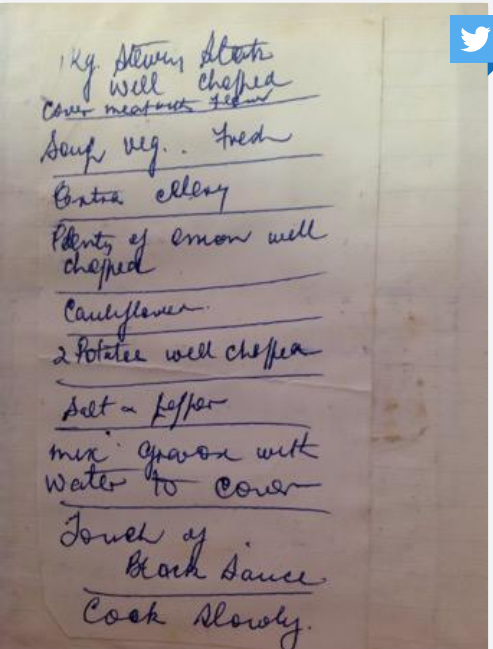 1 Kg. Stewing Steak
well chopped
Cover meat with flour
Soup veg.. Fresh
Extra celery
Plenty of onion well
chopped
Cauliflower
2 Potatoe well chopped
Salt & pepper
mix Gravox with
water to cover
Touch of
Black Sauce
Cook Slowly.